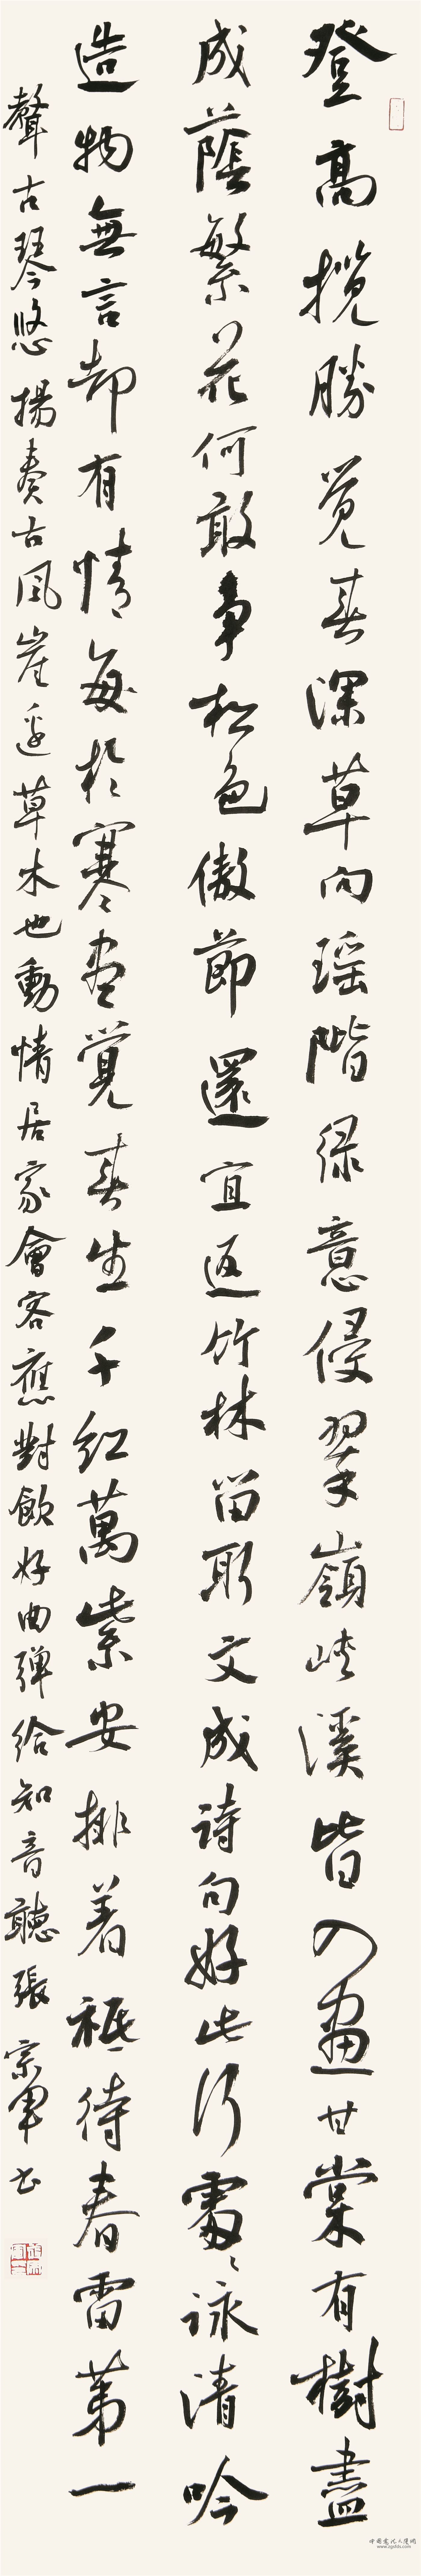 登高攬勝覺春深草向瑤階綠意侵翠嶺峽溪皆入畫甘棠有樹盡
成蔭繁花何敢爭松色傲節還宜返竹林留取文成詩句好此行處處詠清吟
造物無言却有情每於寒盡覺春生千紅萬紫安排着祗待春雷第一
聲古琴悠揚奏古風崖邊草木也動情居家會客應對飲好曲彈給知音聽張宗軍书
中国当代人德网
www.zgshfs.com